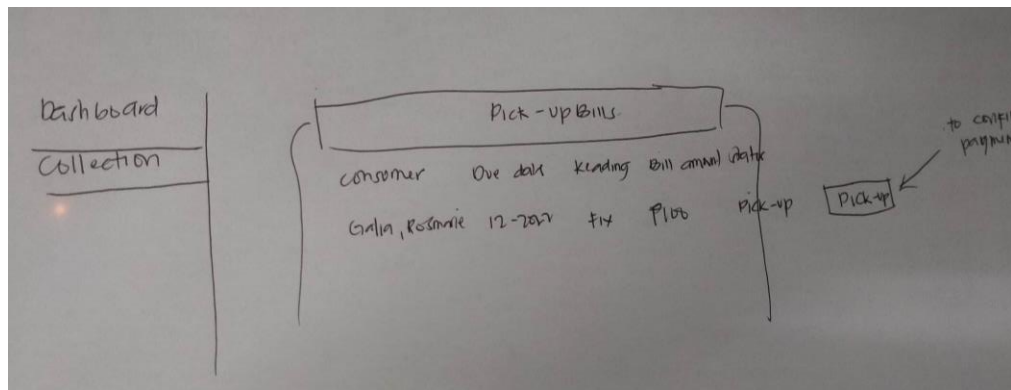 Dashboard
Collection
Pick-up Bills
consumer Due date Reading Bill amount status
Galia, Rosmarie 12-2022 Fix ₱100 Pick-up Pick-up
to confirm
payment